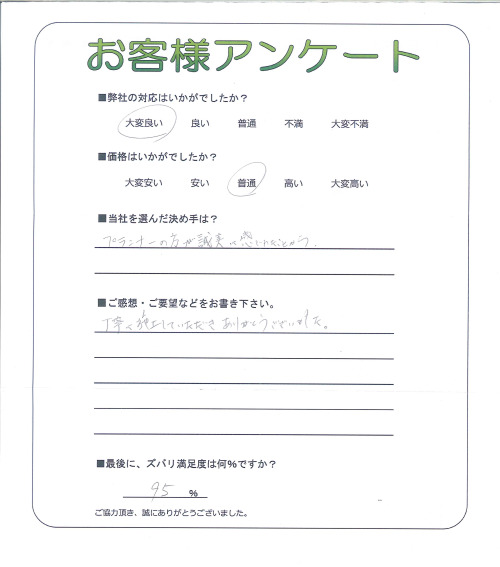 お客様アンケート
■弊社の対応はいかがでしたか？
大変良い 良い 普通 不満 大変不満
■価格はいかがでしたか？
大変安い 安い 普通 高い 大変高い
■当社を選んだ決め手は？
プランナーの方が誠実に感じれたとから、
■ご感想・ご要望などをお書き下さい。
丁寧に施工していただきありがとうございました。
■最後に、ズバリ満足度は何%ですか？
95 %
ご協力頂き、誠にありがとうございました。